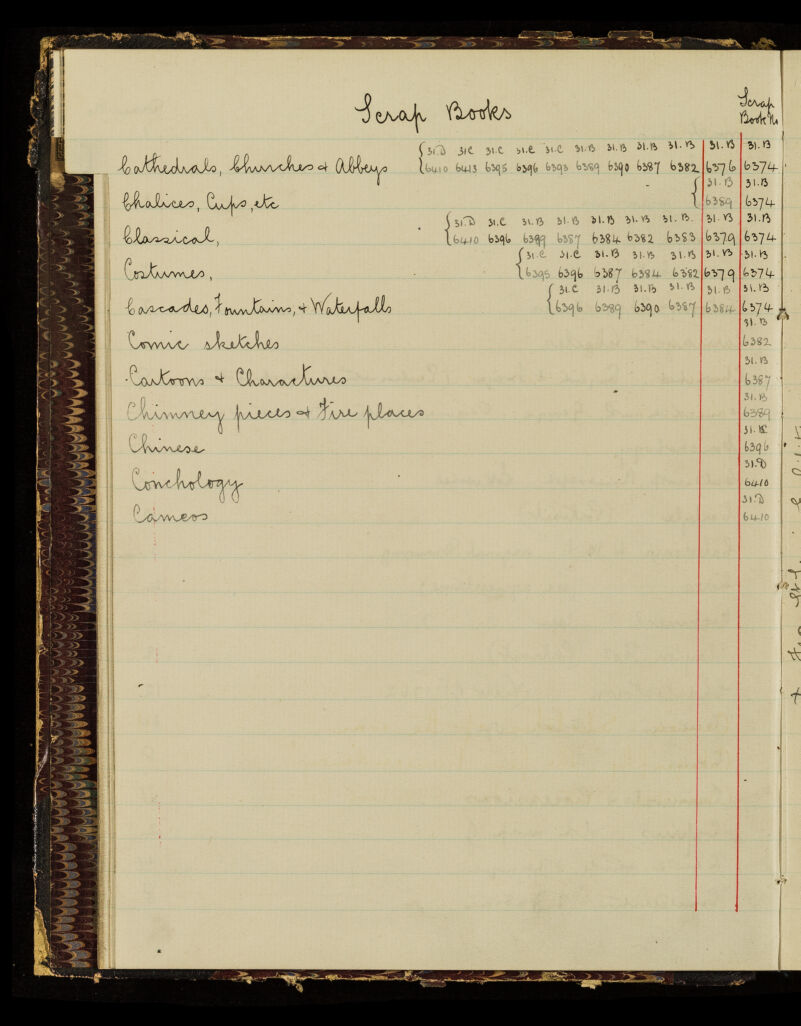 Scrap Books
Scrap
Book No
{ 31.D 31C 31.C 31.C 31.C 31.B 31.B 31.B 31.B 31.B 31.B
Cathedrals, Churches & Abbeys { 6410 6413 6395 6396 6393 6389 6390 6387 6382 6376 6374
{ 31.B 31.B
Chalices, Cups, etc { 6389 6374
{ 31.D 31.C 31.B 31.B 31.B 31.B 31.B. 31.B 31.B
Classical, { 6410 6396 6389 6387 6384 6382 6383 6379 6374
{ 31.C 31.C 31.B 31.B 31.B 31.B 31.B
Costumes, { 6395 6396 6387 6384 6382 6379 6374
{ 31.C 31.B 31.B 31.B 31.B 31.B
Cascades, Fountains, & Waterfalls { 6396 6389 6390 6387 6384 6374
31.B
Comic sketches 6382
31.B
Cartoons & Charactures 6387
31.B
Chimney pieces & Fire places 6389
31.C
Chinese 6396
31.D
Conchology 6410
31.D
Cameos 6410